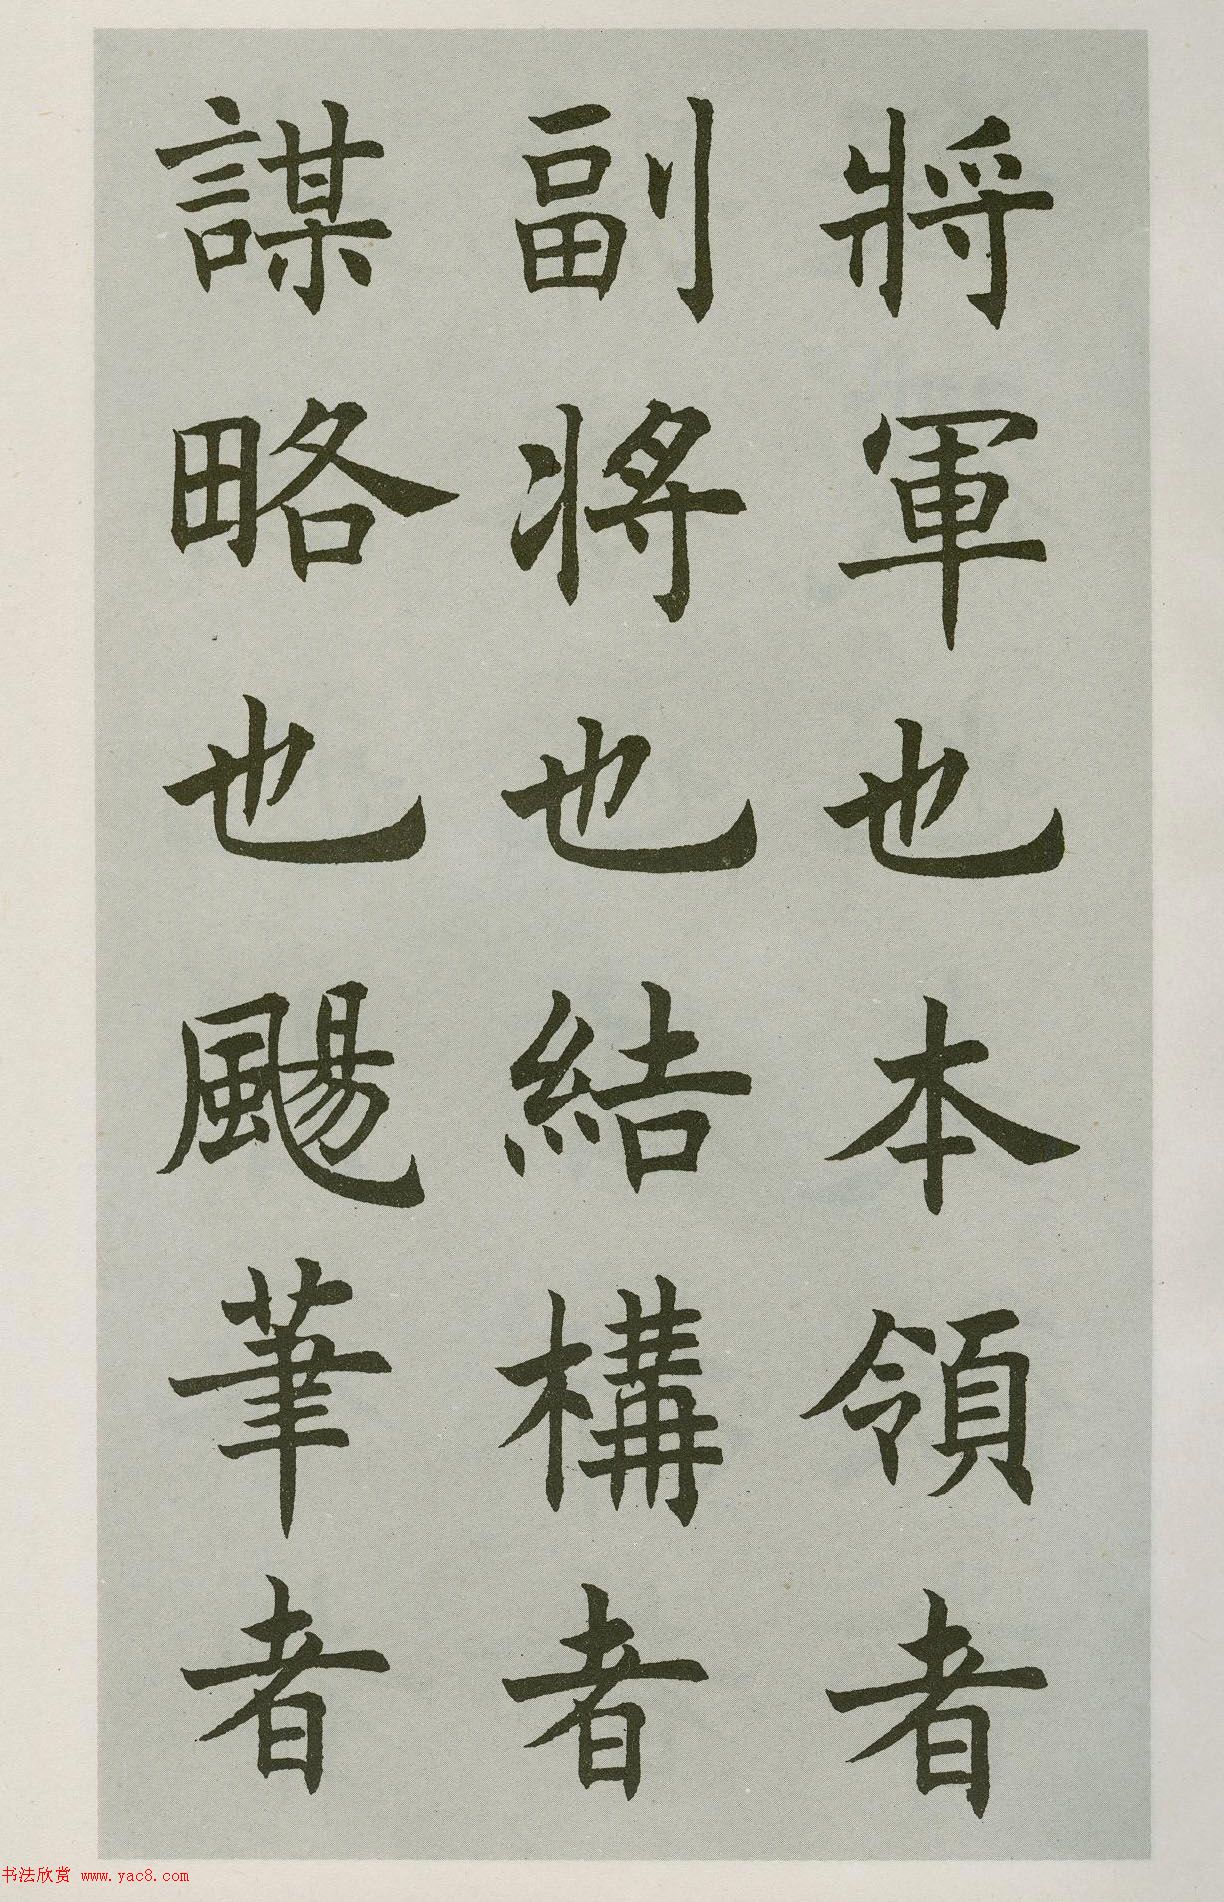 將軍也本領者
副將也結構者
謀略也颺筆者
书法欣赏 www.yac8.com